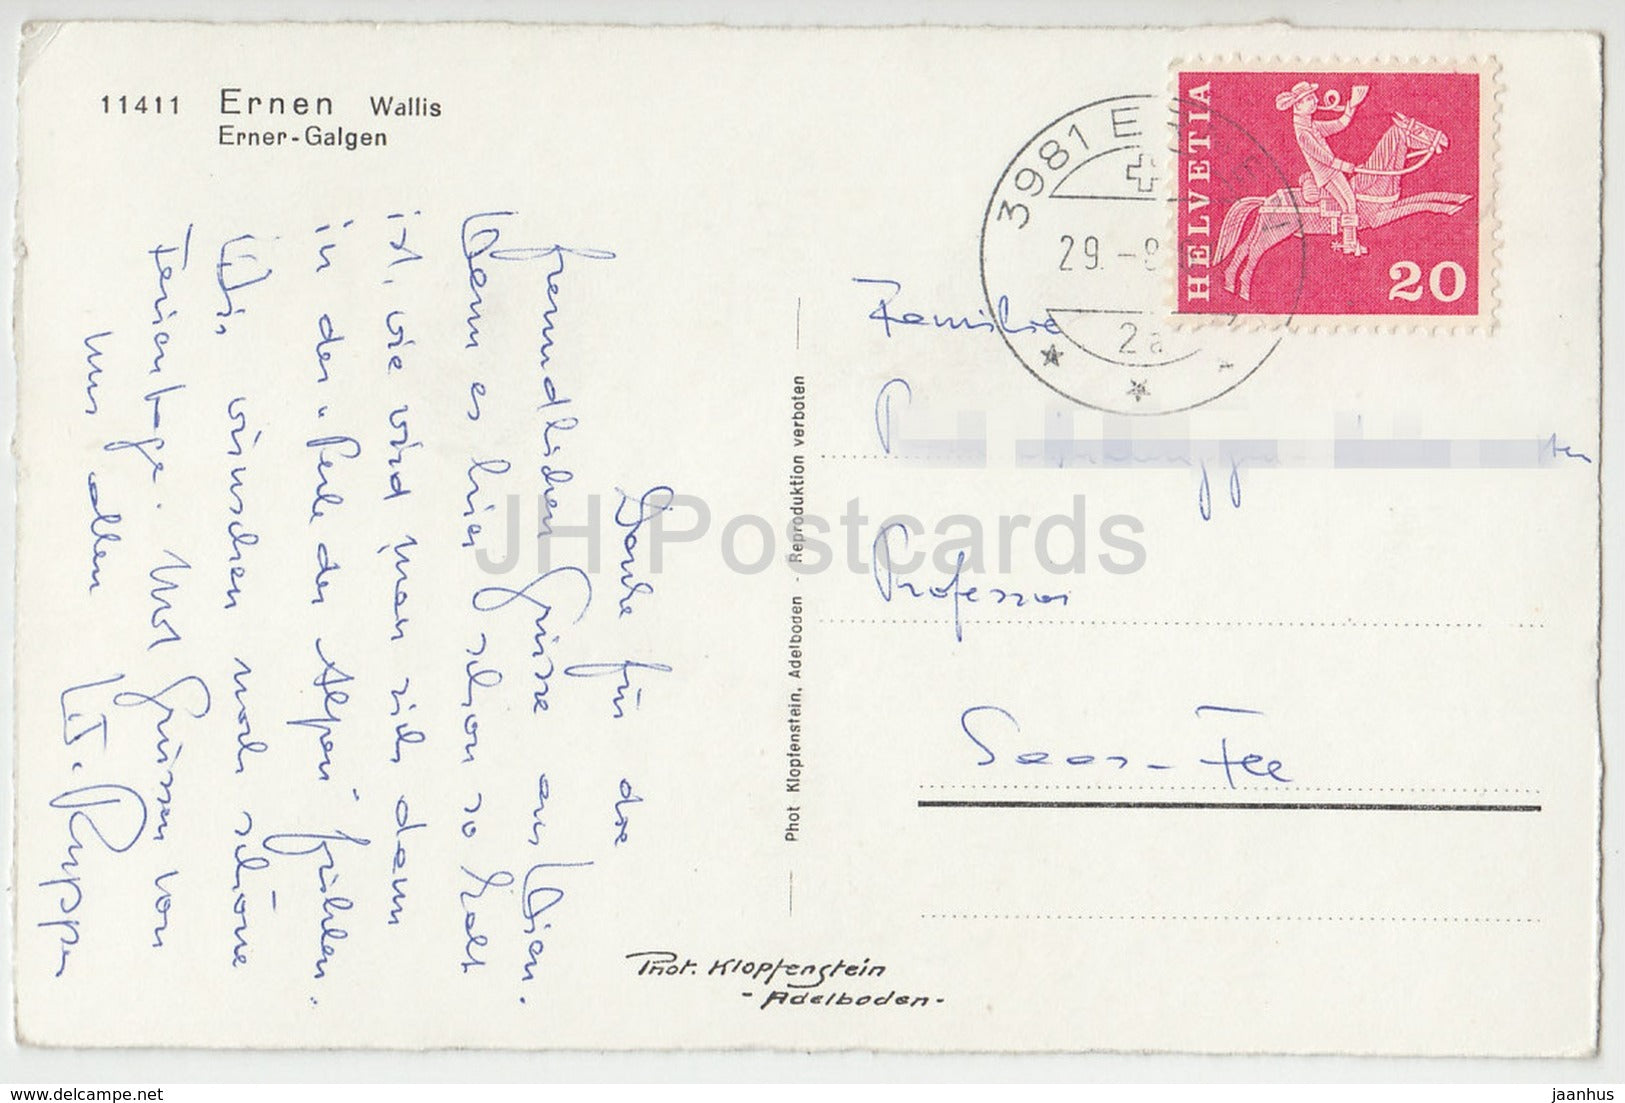 11411 Ernen Wallis
Erner-Galgen
Danke für die
freundlichen Grüsse aus Wien.
Wenn es hier schon so kalt
ist, wie wird man sich dann
in der "Perle der Alpen" fühlen.
Wir wünschen noch schöne
Ferientage. Mit Grüssen von
uns allen
Ruppen
Phot Klopfenstein, Adelboden - Reproduktion verboten
Phot. Klopfenstein
- Adelboden -
3981 E
29. -8
2a
HELVETIA
20
Familie
Professor
Saas-Fee
JH Postcards
www.delcampe.net
jaanhus